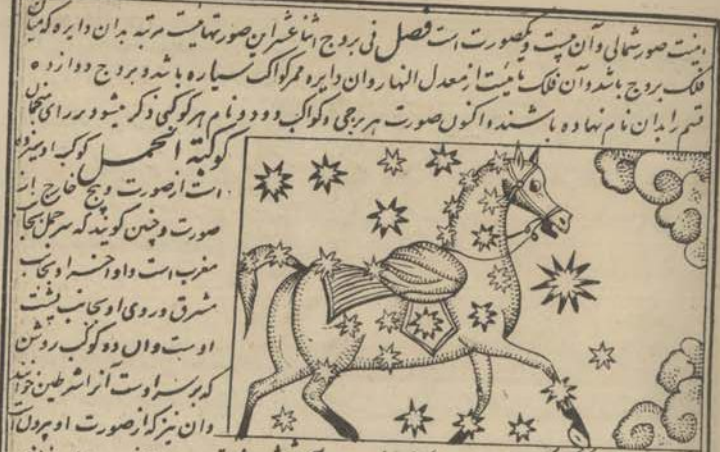 اینست صور شمالی و آن بیست و یکصورت است فصل فی بروج اثنا عشر این صورتهاییست مرتبه بدان دایره که میان
فلک بروج باشد و آن فلک مائیست از معدل النهار و آن دایره ممر کواکب سیاره باشد و بروج دوازده
قسم را بدان نام نهاده باشند و اکنون صورت هر برجی و کواکب و نام هر کوکبی ذکر میشود بر رای
کوکبة الحمل کوکب او سیزده
است از صورت و پنج خارج از
صورت و چنین گویند که سر حمل بجانب
مغرب است و او اخر او بجانب
مشرق و روی او بجانب پشت
اوست و آن دو کوکب روشن
که بر سر اوست آنرا شرطین خوانند
و آن نیز که از صورت او بیرون است